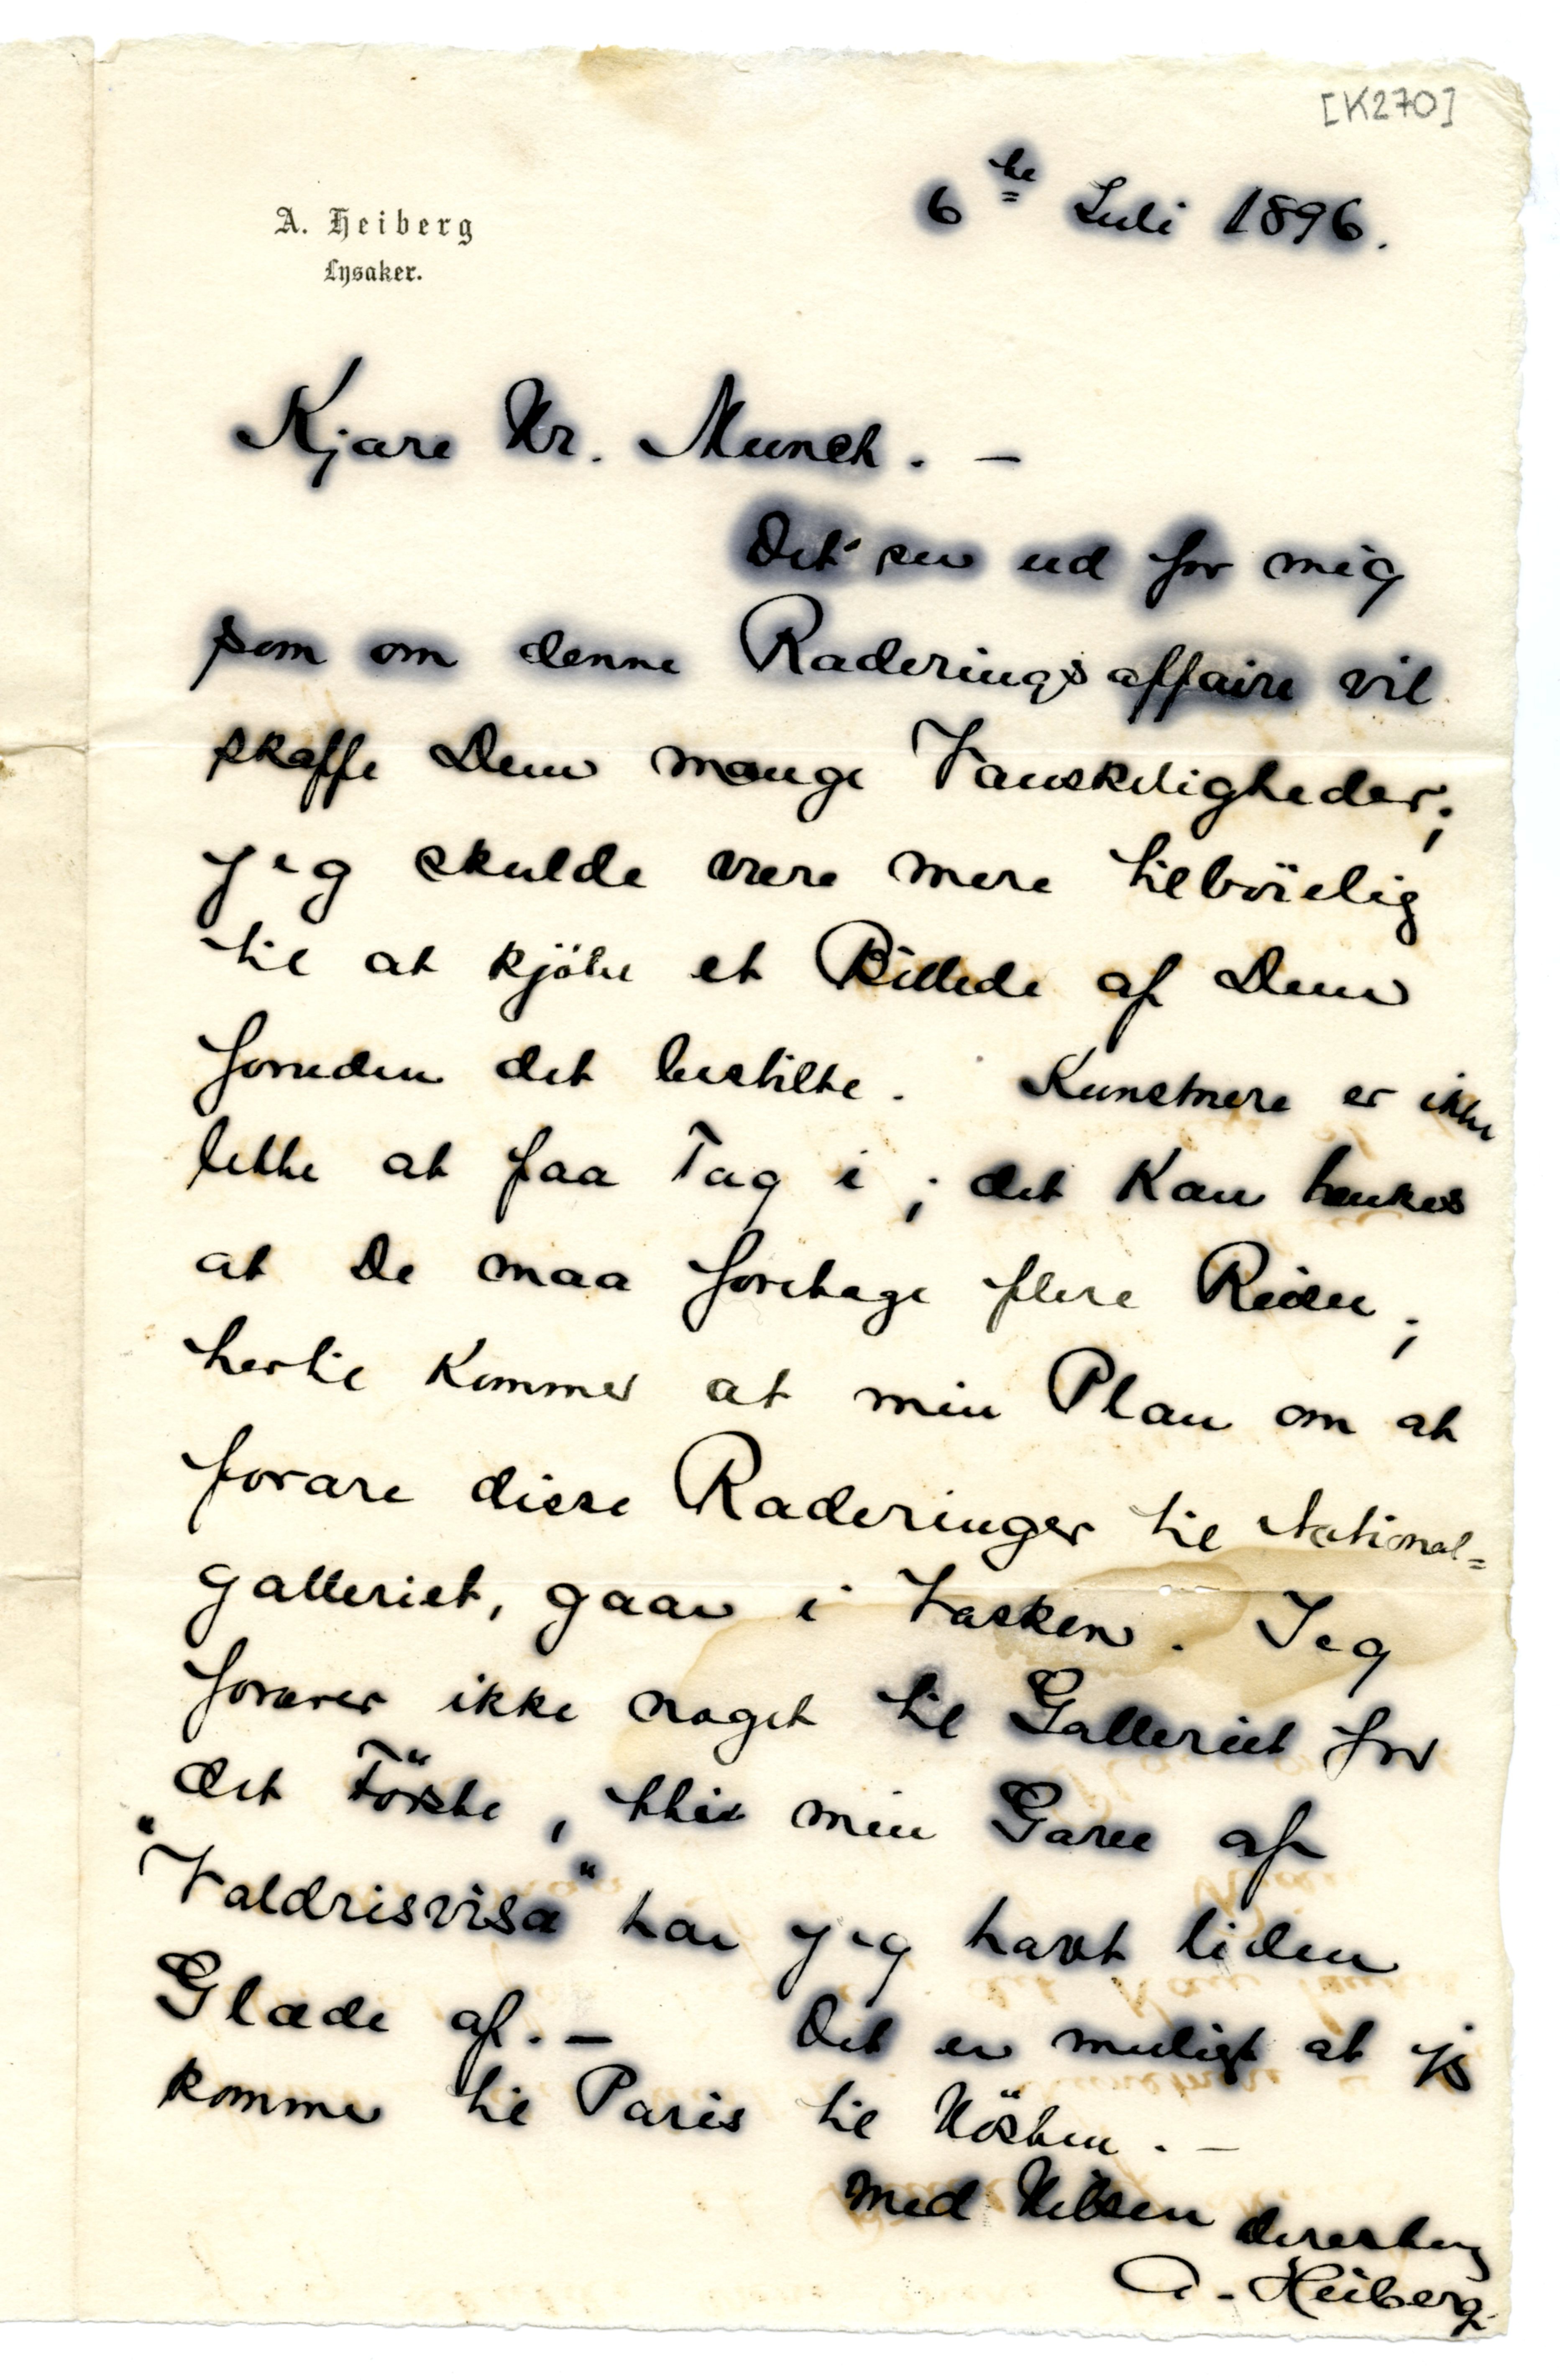 [K270]
6te Juli 1896.
A. Heiberg
Lysaker.
Kjære Hr. Munch. –
Det ser ud for mig
som om denne Raderingsaffaire vil
skaffe Dem mange Vanskeligheder;
jeg skulde være mere tilbøielig
til at kjöbe et Billede af Dem
foruden det bestilte. Kunstnere er ikke
lette at faa Tag i; det kan hænkes
at De maa foretage flere Reiser;
hertil kommer at min Plan om at
forære disse Raderinger til National=
galleriet, gaar i Vasken. Jeg
forærer ikke noget til Galleriet for
det Förste, thi min Gave af
"Valdrisvisa" har jeg havt liden
Glæde af. – Det er muligt at jeg
kommer til Paris til Hösten. –
Med Hilsen Deres
A. Heiberg.